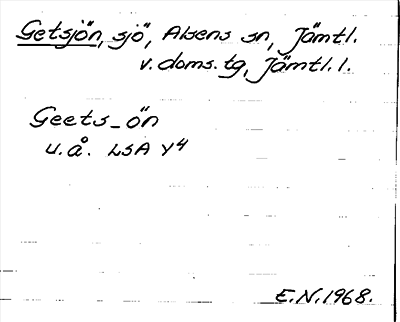 Getsjön, sjö, Alsens sn, Jämtl.
v. doms. tg, Jämtl. l.
Geets-ön
u.å. LSA Y4
E.N. 1968.